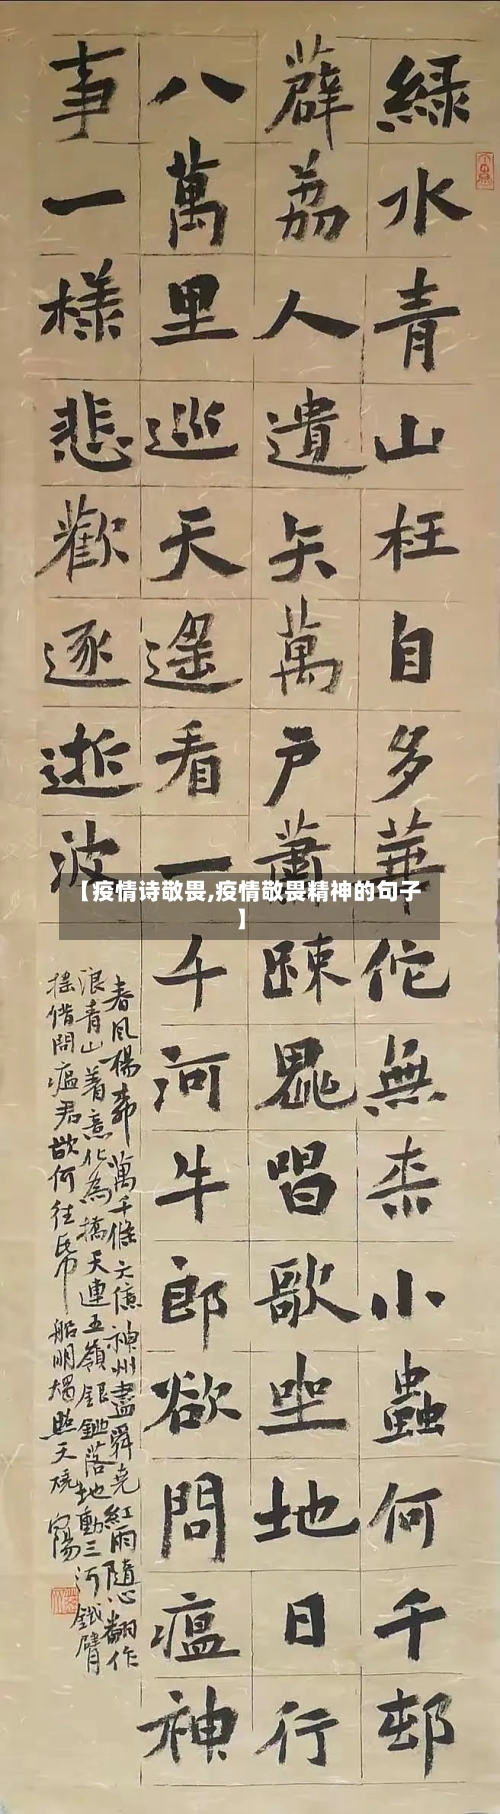 綠水青山枉自多華佗無柰小蟲何千邨
薜荔人遺矢萬戶蕭疎鬼唱歌坐地日行
八萬里巡天遙看一千河牛郎欲問瘟神
事一樣悲歡逐逝波
春風楊柳萬千條六億神州盡舜堯紅雨隨心翻作
浪青山着意化為橋天連五嶺銀鋤落地動三河鐵臂
搖借問瘟君欲何往帋船明燭照天燒
【疫情诗敬畏,疫情敬畏精神的句子
】